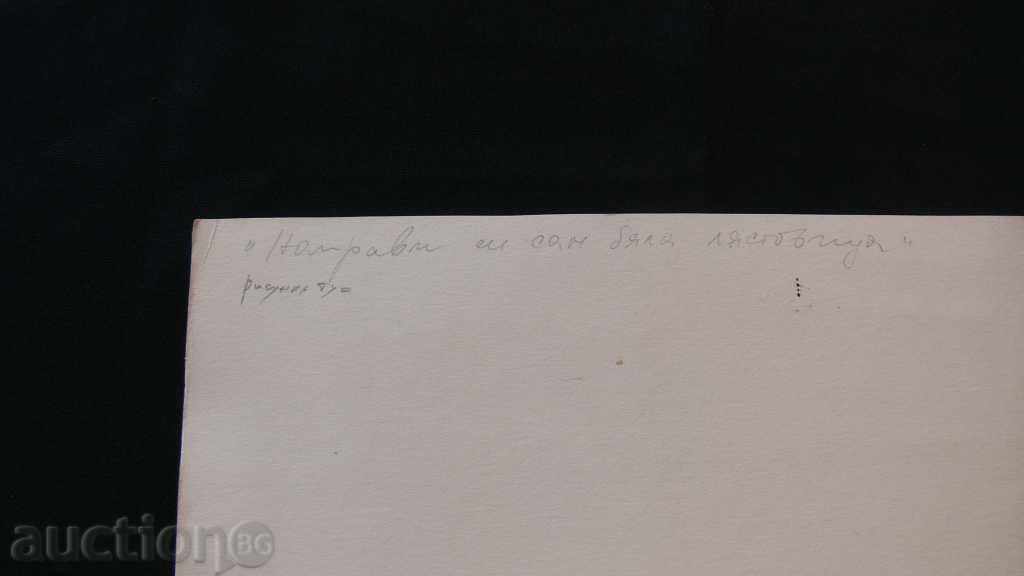 „Направи си сам бяла лястовица“
рисунка туш
auctionBG